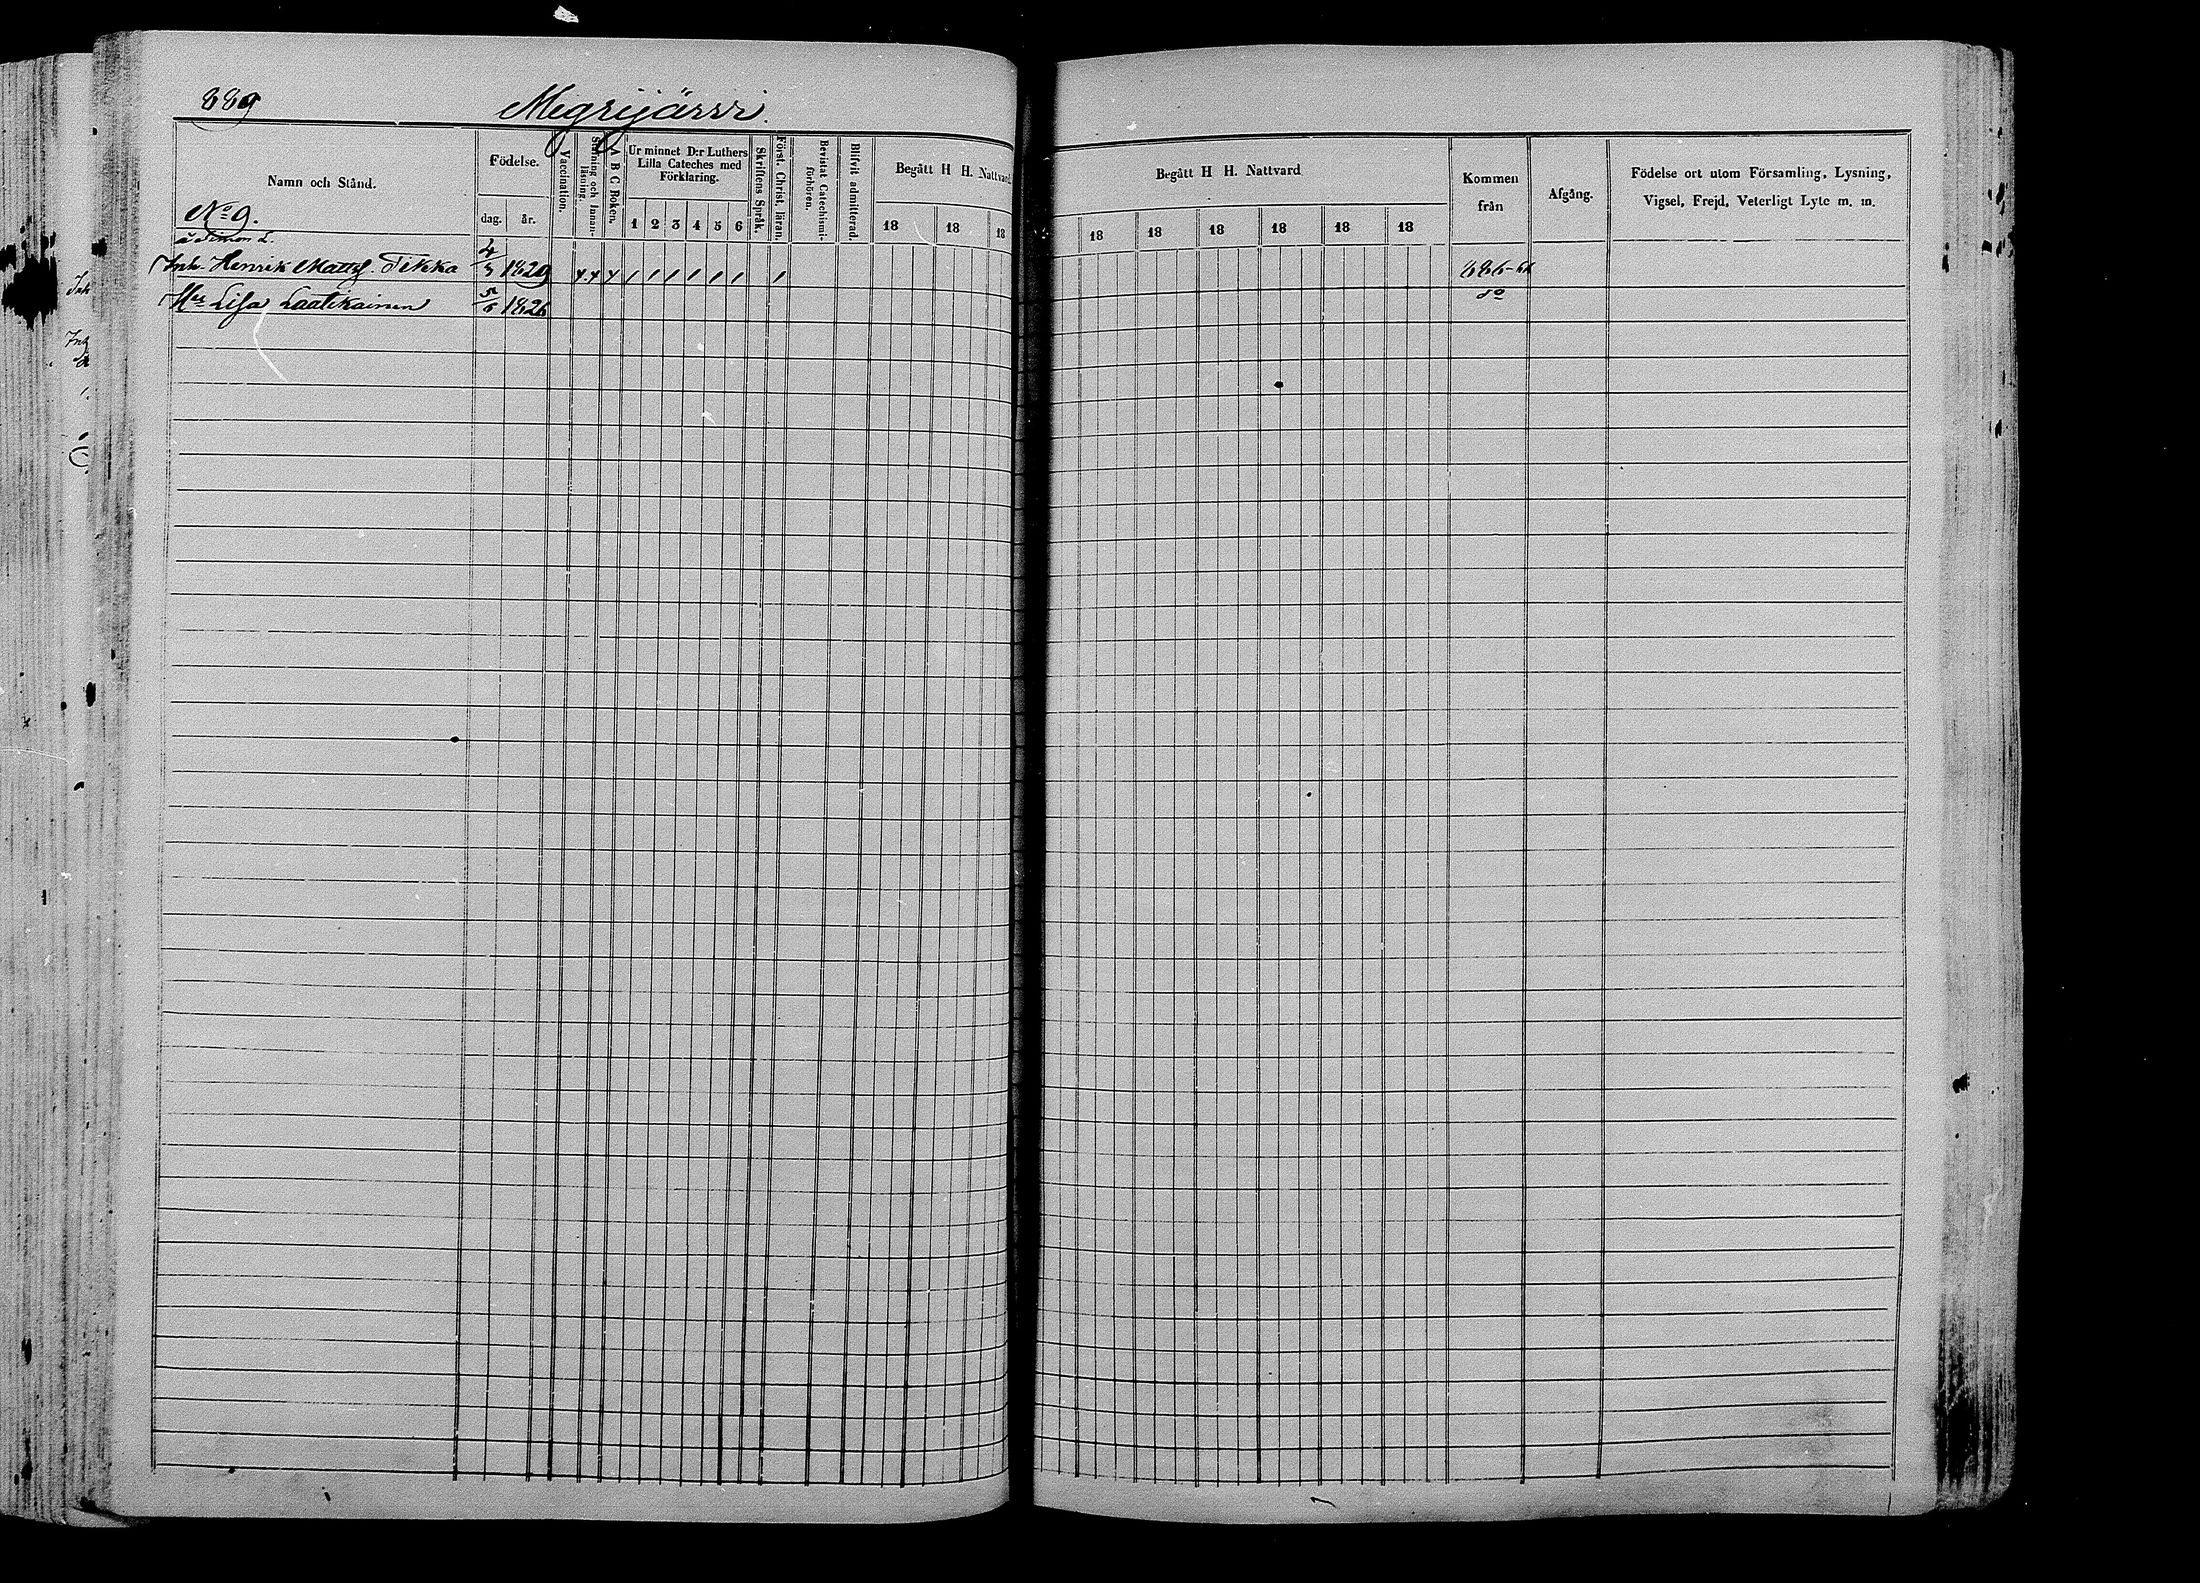 889
Megrijärvi.
Namn och Stånd.
Födelse.
dag. år.
Vaccination.
Stafning och Innan-läsning.
A B C Boken.
Ur minnet D:r Luthers Lilla Cateches med Förklaring.
1 2 3 4 5 6
Skriftens Språk.
Först. Christ. läran.
Bevistat Catechismi-förhören.
Blifvit admitterad.
Begått H H. Nattvard
18 18 18
Begått H H. Nattvard
18 18 18 18 18 18
Kommen från
Afgång.
Födelse ort utom Församling, Lysning, Vigsel, Frejd, Veterligt Lyte m. m.
No 9.
å Simon L.
Inh. Henrik Mattsf. Tikka 4/3 1829 886-66
Hu Lisa Laatikainen 5/6 1826 do